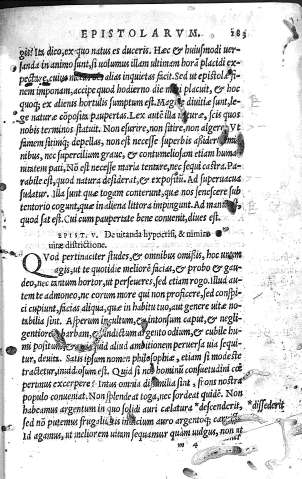 EPISTOLARVM. 283
gis? Ita dico, ex quo natus es duceris. Hæc & huiusmodi uer-
sanda in animo sunt, si uolumus illam ultimam horā placidi ex-
pectare, cuius metus alias inquietas facit. Sed ut epistolæ fi-
nem imponam, accipe quod hodierno die mihi placuit, & hoc
quoq; ex alienis hortulis sumptum est. Magnæ diuitiæ sunt, le-
ge naturæ cōposita paupertas. Lex autē illa naturæ, scis quos
nobis terminos statuit. Non esurire, non sitire, non algere. Vt
famem sitimq; depellas, non est necesse superbis assidere limi-
nibus, nec supercilium graue, & contumeliosam etiam huma-
nitatem pati, Nō est necesse maria tentare, nec sequi castra. Pa-
rabile est, quod natura desiderat, & expositū. Ad superuacua
sudatur. Illa sunt quæ togam conterunt, quæ nos senescere sub
tentorio cogunt, quæ in aliena littora impingunt. Ad manū est,
quod sat est. Cui cum paupertate bene conuenit, diues est.
EPIST. V. De uitanda hypocrisi, & nimia
uitæ districtione.
QVod pertinaciter studes, & omnibus omissis, hoc unum
agis, ut te quotidie meliorē facias, & probo & gau-
deo, nec tantum hortor, ut perseueres, sed etiam rogo. Illud au-
tem te admoneo, ne eorum more qui non proficere, sed conspi-
ci cupiunt, facias aliqua, quæ in habitu tuo, aut genere uitæ no-
tabilia sint. Asperum incultum, & intonsum caput, & negli-
gentiorem barbam, & indictum argento odium, & cubile hu-
mi positum, quicquid aliud ambitionem peruersa uia sequi-
tur, deuita. Satis ipsum nomen philosophiæ, etiam si modeste
tractetur, inuidiosum est. Quid si nos hominū consuetudini cœ-
perimus excerpere? Intus omnia dissimilia sint, frons nostra
populo conueniat. Non splendeat toga, nec sordeat quidē. Non
habeamus argentum in quo solidi auri cælatura *descenderit, *dissederit
sed nō putemus frugalitatis indicium auro argentoq; carere.
Id agamus, ut meliorem uitam sequamur quàm uulgus, non ut